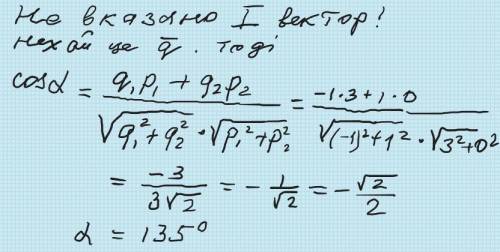 Не вказано I вектор!
нехай це q̄. тоді
cosα = (q₁p₁ + q₂p₂) / (√(q₁² + q₂²) · √(p₁² + p₂²)) = (-1·3 + 1·0) / (√((-1)² + 1²) · √(3² + 0²))
= -3 / (3√2) = -1/√2 = -√2/2
α = 135°